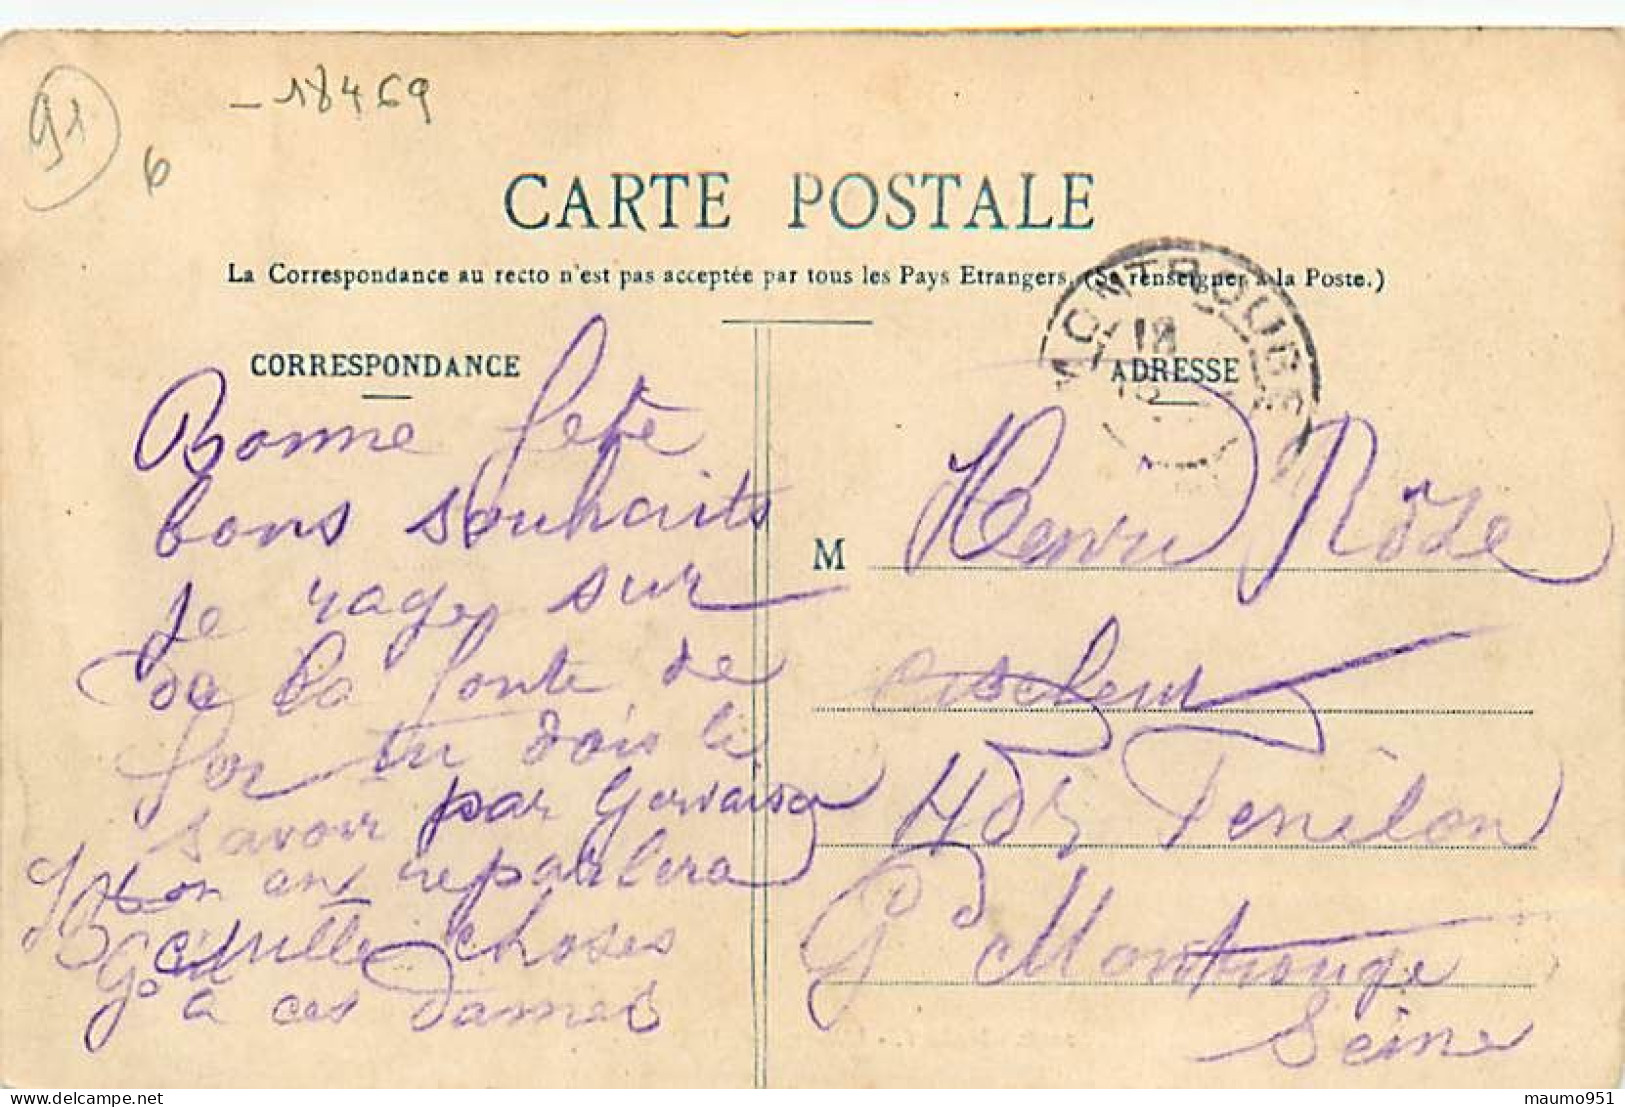 91
6
- 18469
CARTE POSTALE
La Correspondance au recto n'est pas acceptée par tous les Pays Etrangers. (Se renseigner à la Poste.)
MONTROUGE
18
CORRESPONDANCE
Bonne fete
bons souhaits
je rage sur
de la fonte de
fer tu dois le
savoir par Gervaise
on en reparlera
mille choses
a ces dames
ADRESSE
M Henri Rode
ciseleur
4 Fénélon
Gd Montrouge
Seine
delcampe.net
maumo951